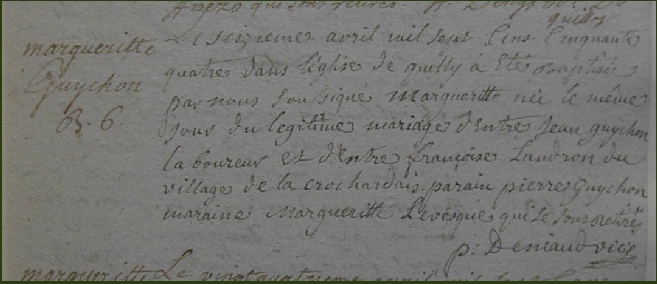 qui sont
quilly
margueritte
Guychon
B. 6.
Le seizieme avril mil sept Cens Cinquante
quatre dans l'église de quilly a Eté Baptisée
par nous Soussigné Margueritte née le même
jour du legitime mariage d'entre Jean guychon
laboureur et d'Entre françoise Landron du
village de la crochardais. parain pierre Guychon
maraine Margueritte Levesque qui se sont retirés
p: Deniaud vic
margueritte Le vingtquatrieme avril mil sept